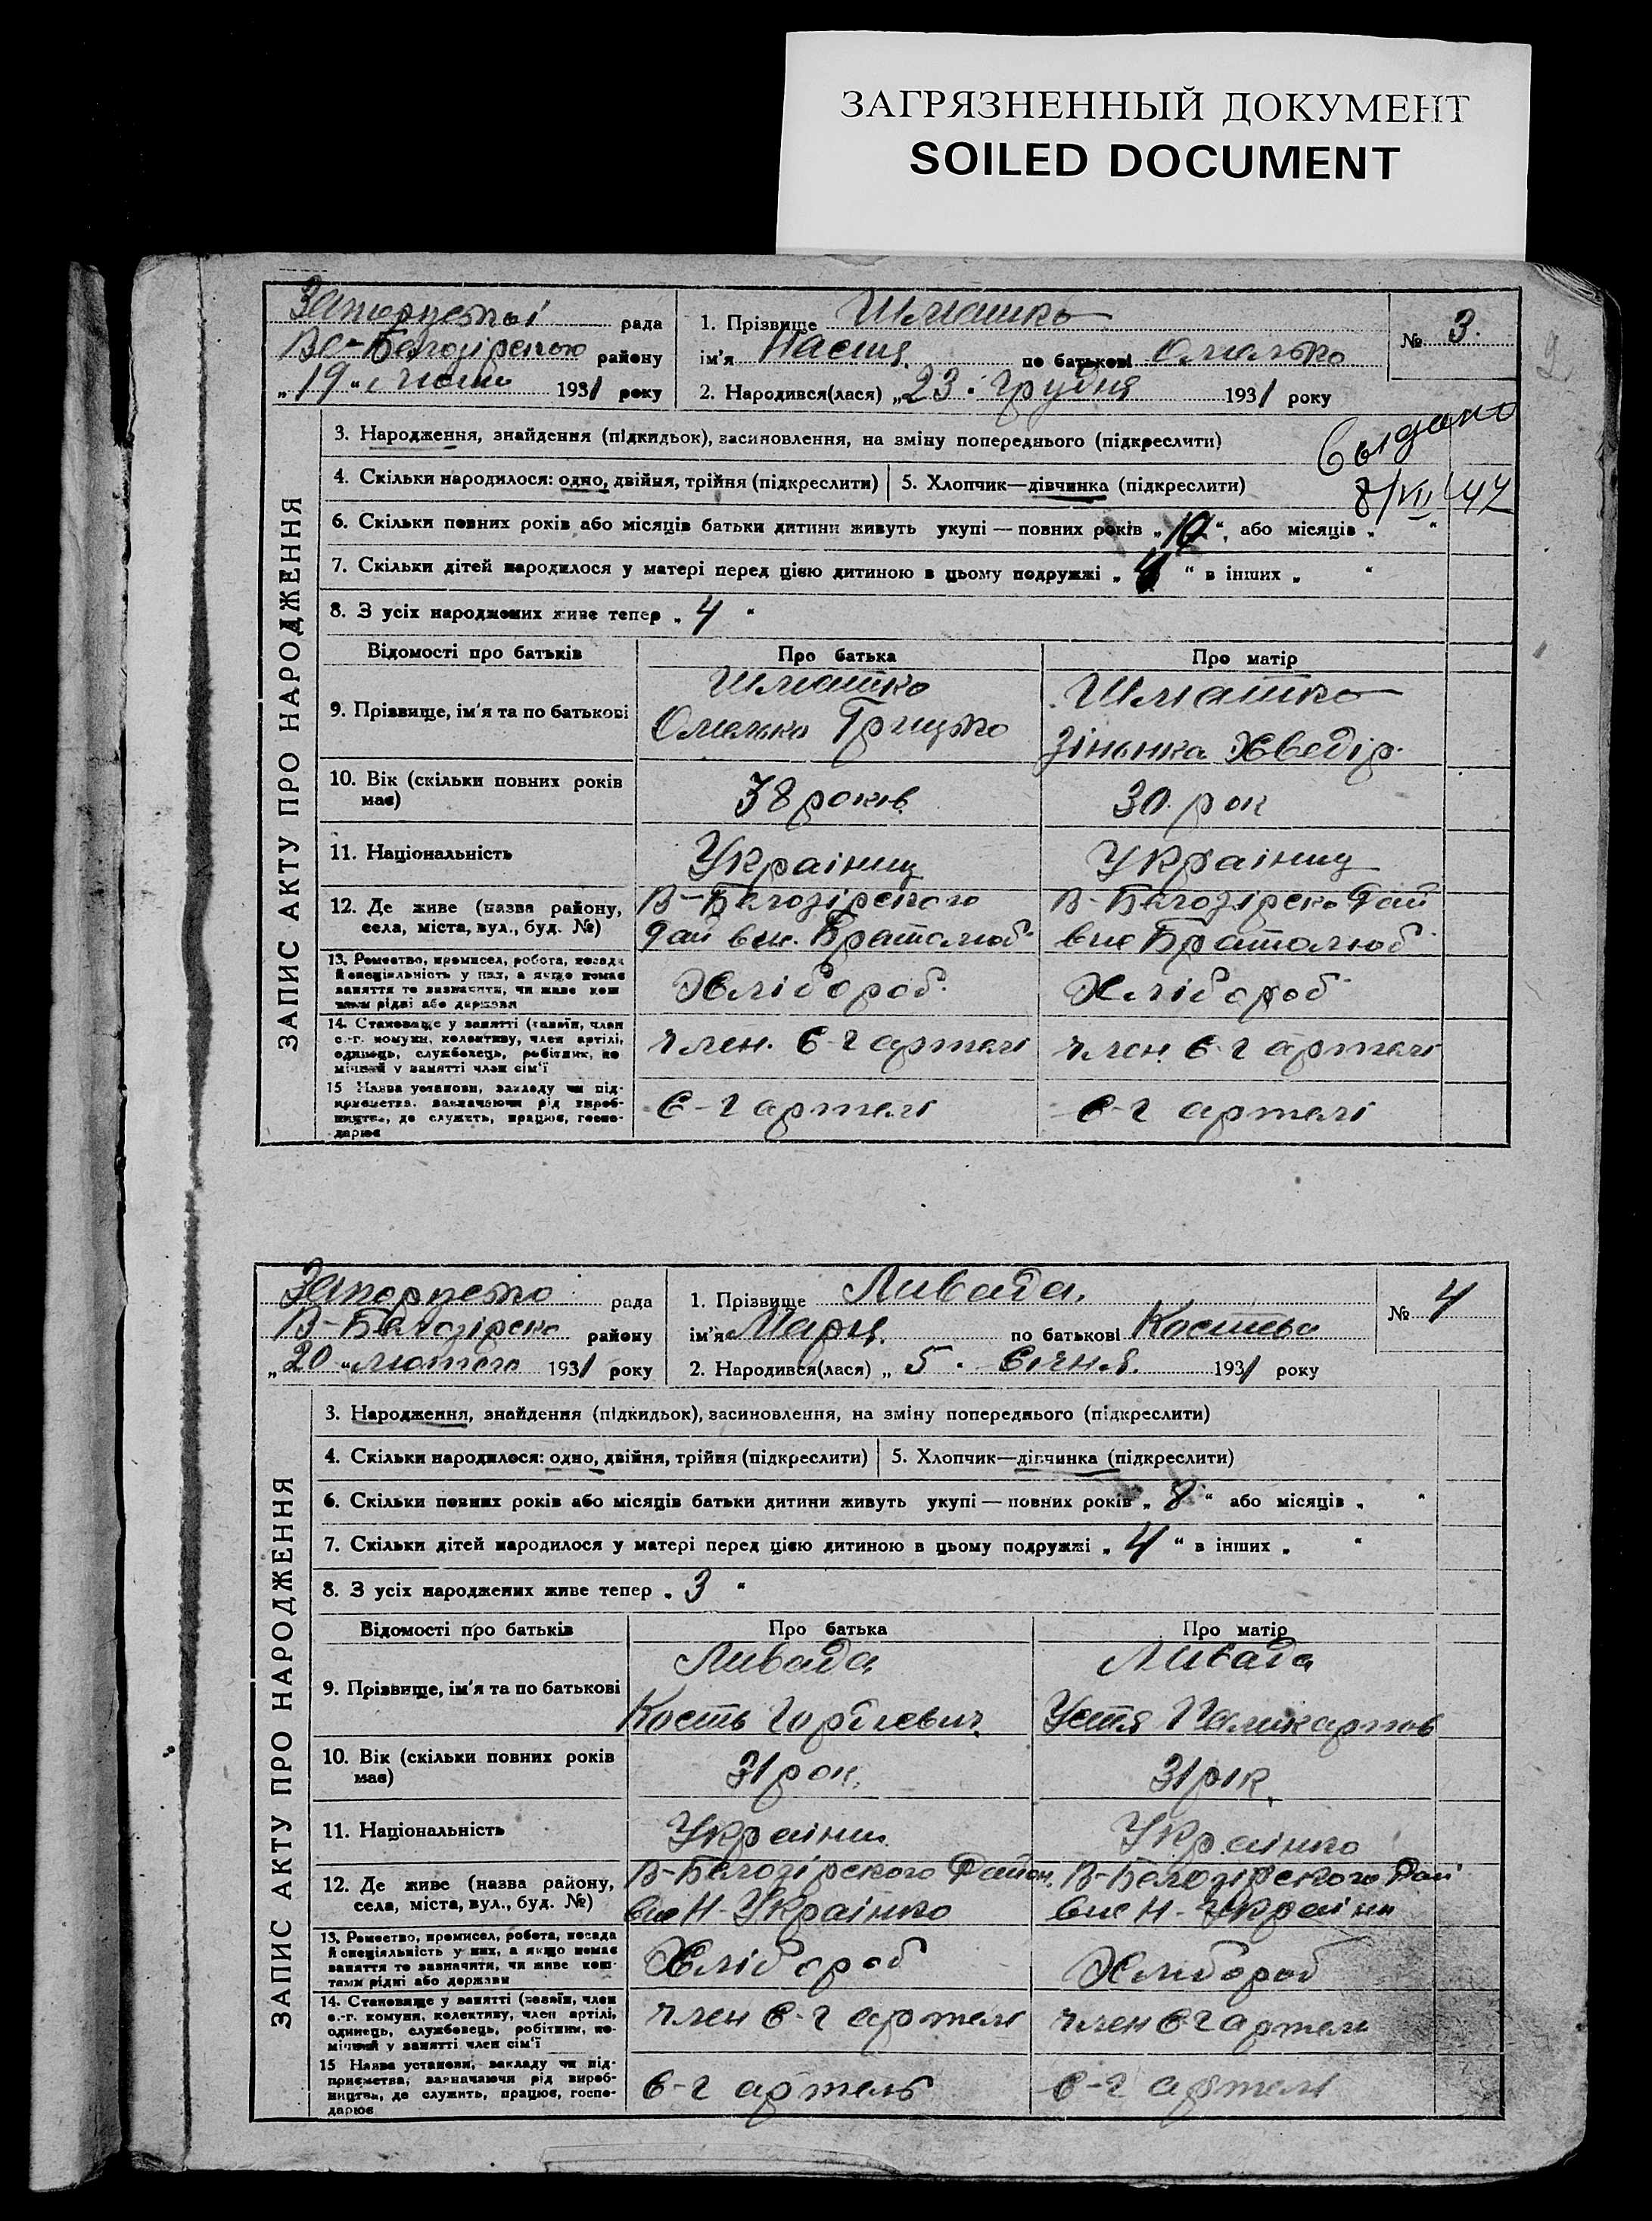 ЗАГРЯЗНЕННЫЙ ДОКУМЕНТ
SOILED DOCUMENT
рада
В-Білозірського району
„19“ 1931 року
1. Прізвище Шлюшко
ім'я Настя по батькові Омелько
2. Народився(лася) „23. грудня 1931 року
№ 3.
3. Народження, знайдення (підкидьок), засиновлення, на зміну попереднього (підкреслити)
Выдано
8/VII 47
4. Скільки народилося: одно, двійня, трійня (підкреслити)
5. Хлопчик—дівчинка (підкреслити)
6. Скільки повних років або місяців батьки дитини живуть укупі — повних років „10“, або місяців „ “
7. Скільки дітей народилося у матері перед цією дитиною в цьому подружжі „4“ в інших „ “
8. З усіх народжених живе тепер „4“
ЗАПИС АКТУ ПРО НАРОДЖЕННЯ
Відомості про батьків
Про батька
Про матір
9. Прізвище, ім'я та по батькові
Омелько Грицько
Зінька Хведір.
10. Вік (скільки повних років
має)
38 років
30. рок
11. Національність
Українец
Українец
12. Де живе (назва району,
села, міста, вул., буд. №)
В-Белозірского
Рай вис. Братолюб.
В-Белозірско Рай
вис Братолюб
13. Ремество, промисел, робота, посада
й спеціяльність у них, а якщо немає
заняття то зазначити, чи живе кош
тами рідні або держави
Хлібороб.
Хлібороб
14. Становище у занятті (хазяїн, член
с.-г. комуни, колективу, член артілі,
одинець, службовець, робітник, по
мічний у занятті член сім'ї
член. с-г артелі
член с-г артелі
15 Назва установи, закладу чи під-
приємства, зазначаючи рід вироб-
ництва, де служить, працює, госпо-
дарює
с-г артелі
с-г артелі
рада
В-Белозірско району
„20“ лютого 1931 року
1. Прізвище Ливада.
ім'я Марія. по батькові Костева
2. Народився(лася) „5. Січня. 1931 року
№ 4
3. Народження, знайдення (підкидьок), засиновлення, на зміну попереднього (підкреслити)
4. Скільки народилося: одно, двійня, трійня (підкреслити)
5. Хлопчик—дівчинка (підкреслити)
6. Скільки повних років або місяців батьки дитини живуть укупі — повних років „8“ або місяців „ “
7. Скільки дітей народилося у матері перед цією дитиною в цьому подружжі „4“ в інших „ “
8. З усіх народжених живе тепер „3“
ЗАПИС АКТУ ПРО НАРОДЖЕННЯ
Відомості про батьків
Про батька
Про матір
9. Прізвище, ім'я та по батькові
Ливада
Кость
Ливада
Устя
10. Вік (скільки повних років
має)
31 рок.
31 рік.
11. Національність
Українец
Українка
12. Де живе (назва району,
села, міста, вул., буд. №)
В-Белозірского Район.
вис Н-Українка
В-Белозірского Рай
вис Н-Українк
13. Ремество, промисел, робота, посада
й спеціяльність у них, а якщо немає
заняття то зазначити, чи живе кош-
тами рідні або держави
Хлібороб
Хлібороб
14. Становище у занятті (хазяїн, член
с.-г. комуни, колективу, член артілі,
одинець, службовець, робітник, по-
мічний у занятті член сім'ї
член с-г артелі
член с-г артелі
15 Назва установи, закладу чи під-
приємства, зазначаючи рід вироб-
ництва, де служить, працює, госпо-
дарює
с-г артель
с-г артелі